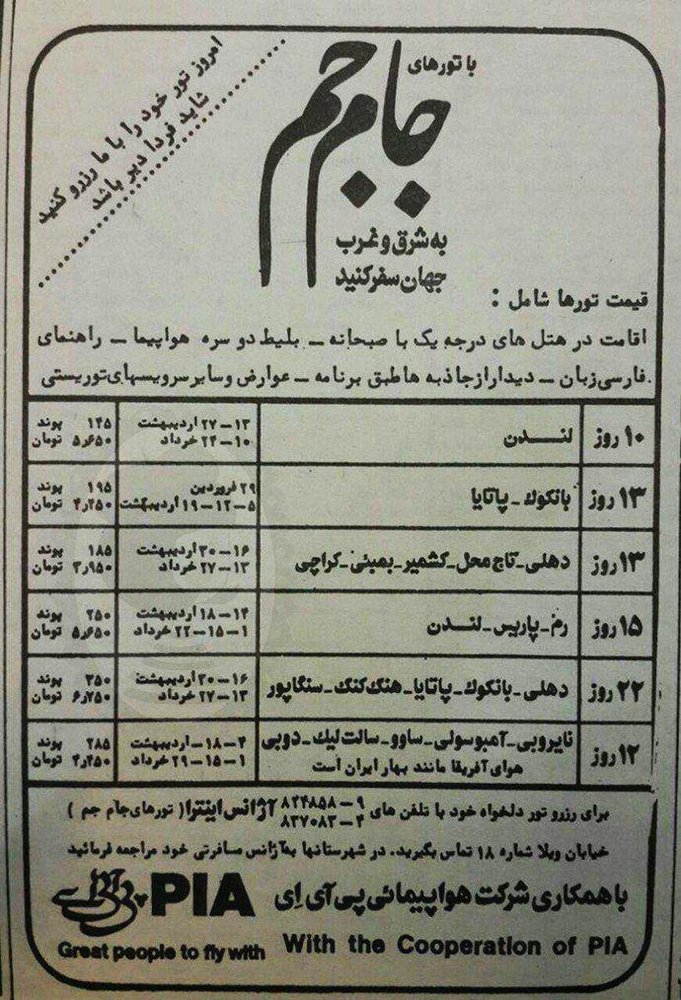 امروز تور خود را با ما رزرو کنید
شاید فردا دیر باشد
با تورهای
جام جم
به شرق و غرب
جهان سفر کنید
قیمت تورها شامل :
اقامت در هتل های درجه یک با صبحانه ـ بلیط دو سره هواپیما ـ راهنمای
فارسی زبان ـ دیدار از جاذبه ها طبق برنامه ـ عوارض و سایر سرویسهای توریستی
۱۰ روز لندن ۱۳–۲۷ اردیبهشت ۱۴۵ پوند
۱۰–۲۴ خرداد ۵٫۶۵۰ تومان
۱۳ روز بانکوک ـ پاتایا ۲۹ فروردین ۱۹۵ پوند
۵–۱۲–۱۹ اردیبهشت ۴٫۲۵۰ تومان
۱۳ روز دهلی ـ تاج محل ـ کشمیر ـ بمبئی ـ کراچی ۱۶–۳۰ اردیبهشت ۱۸۵ پوند
۱۳–۲۷ خرداد ۳٫۹۵۰ تومان
۱۵ روز رم ـ پاریس ـ لندن ۱۴–۱۸ اردیبهشت ۲۵۰ پوند
۱–۱۵–۲۲ خرداد ۵٫۶۵۰ تومان
۲۲ روز دهلی ـ بانکوک ـ پاتایا ـ هنگ کنگ ـ سنگاپور ۱۶–۳۰ اردیبهشت ۳۵۰ پوند
۱۳–۲۷ خرداد ۶٫۲۵۰ تومان
۱۲ روز نایروبی ـ آمبوسولی ـ ساوو ـ سالت لیک ـ دوبی ۴–۱۸ اردیبهشت ۲۸۵ پوند
هوای آفریقا مانند بهار ایران است ۱–۱۵–۲۹ خرداد ۴٫۲۵۰ تومان
برای رزرو تور دلخواه خود با تلفن های ۹–۸۲۴۸۵۸ ۴–۸۳۷۰۸۳ آژانس اینترا ( تورهای جام جم )
خیابان ویلا شماره ۱۸ تماس بگیرید. در شهرستانها به آژانس مسافرتی خود مراجعه فرمائید
با همکاری شرکت هواپیمائی پی آی ای
PIA پی آئی اے
With the Cooperation of PIA
Great people to fly with